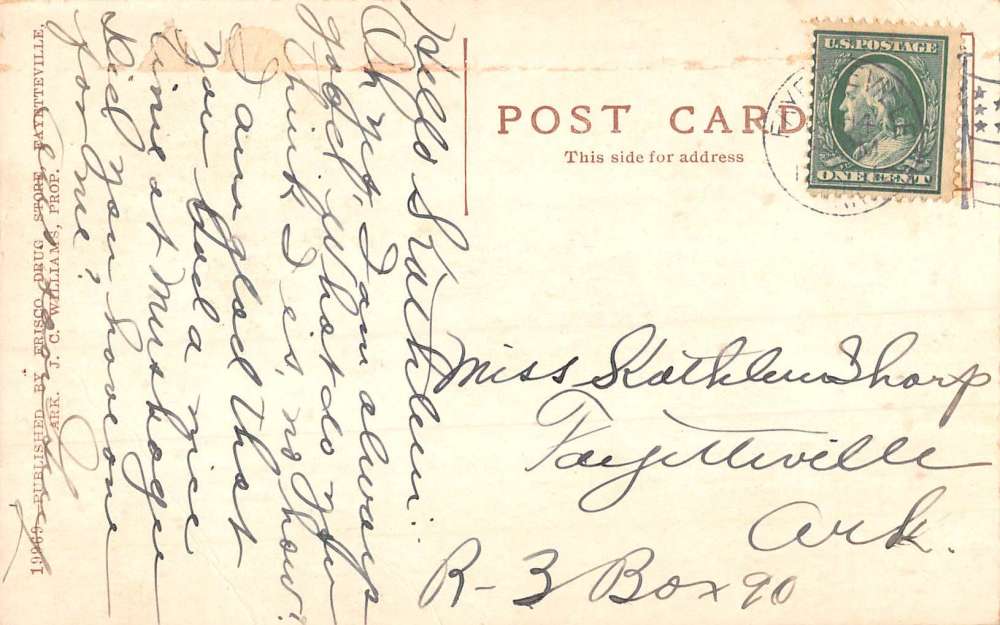 Hello Kathleen:
Oh yes, I am always
joyed, What do you
think I is, no how?
I am glad that
you had a nice
time at Muskogee
Did you have one
for me?
19969 PUBLISHED BY FRISCO DRUG STORE, FAYETTEVILLE,
ARK. J. C. WILLIAMS, PROP.
POST CARD
This side for address
U.S. POSTAGE
ONE CENT
Miss Kathleen Tharp
Fayetteville
Ark.
R-3 Box 90